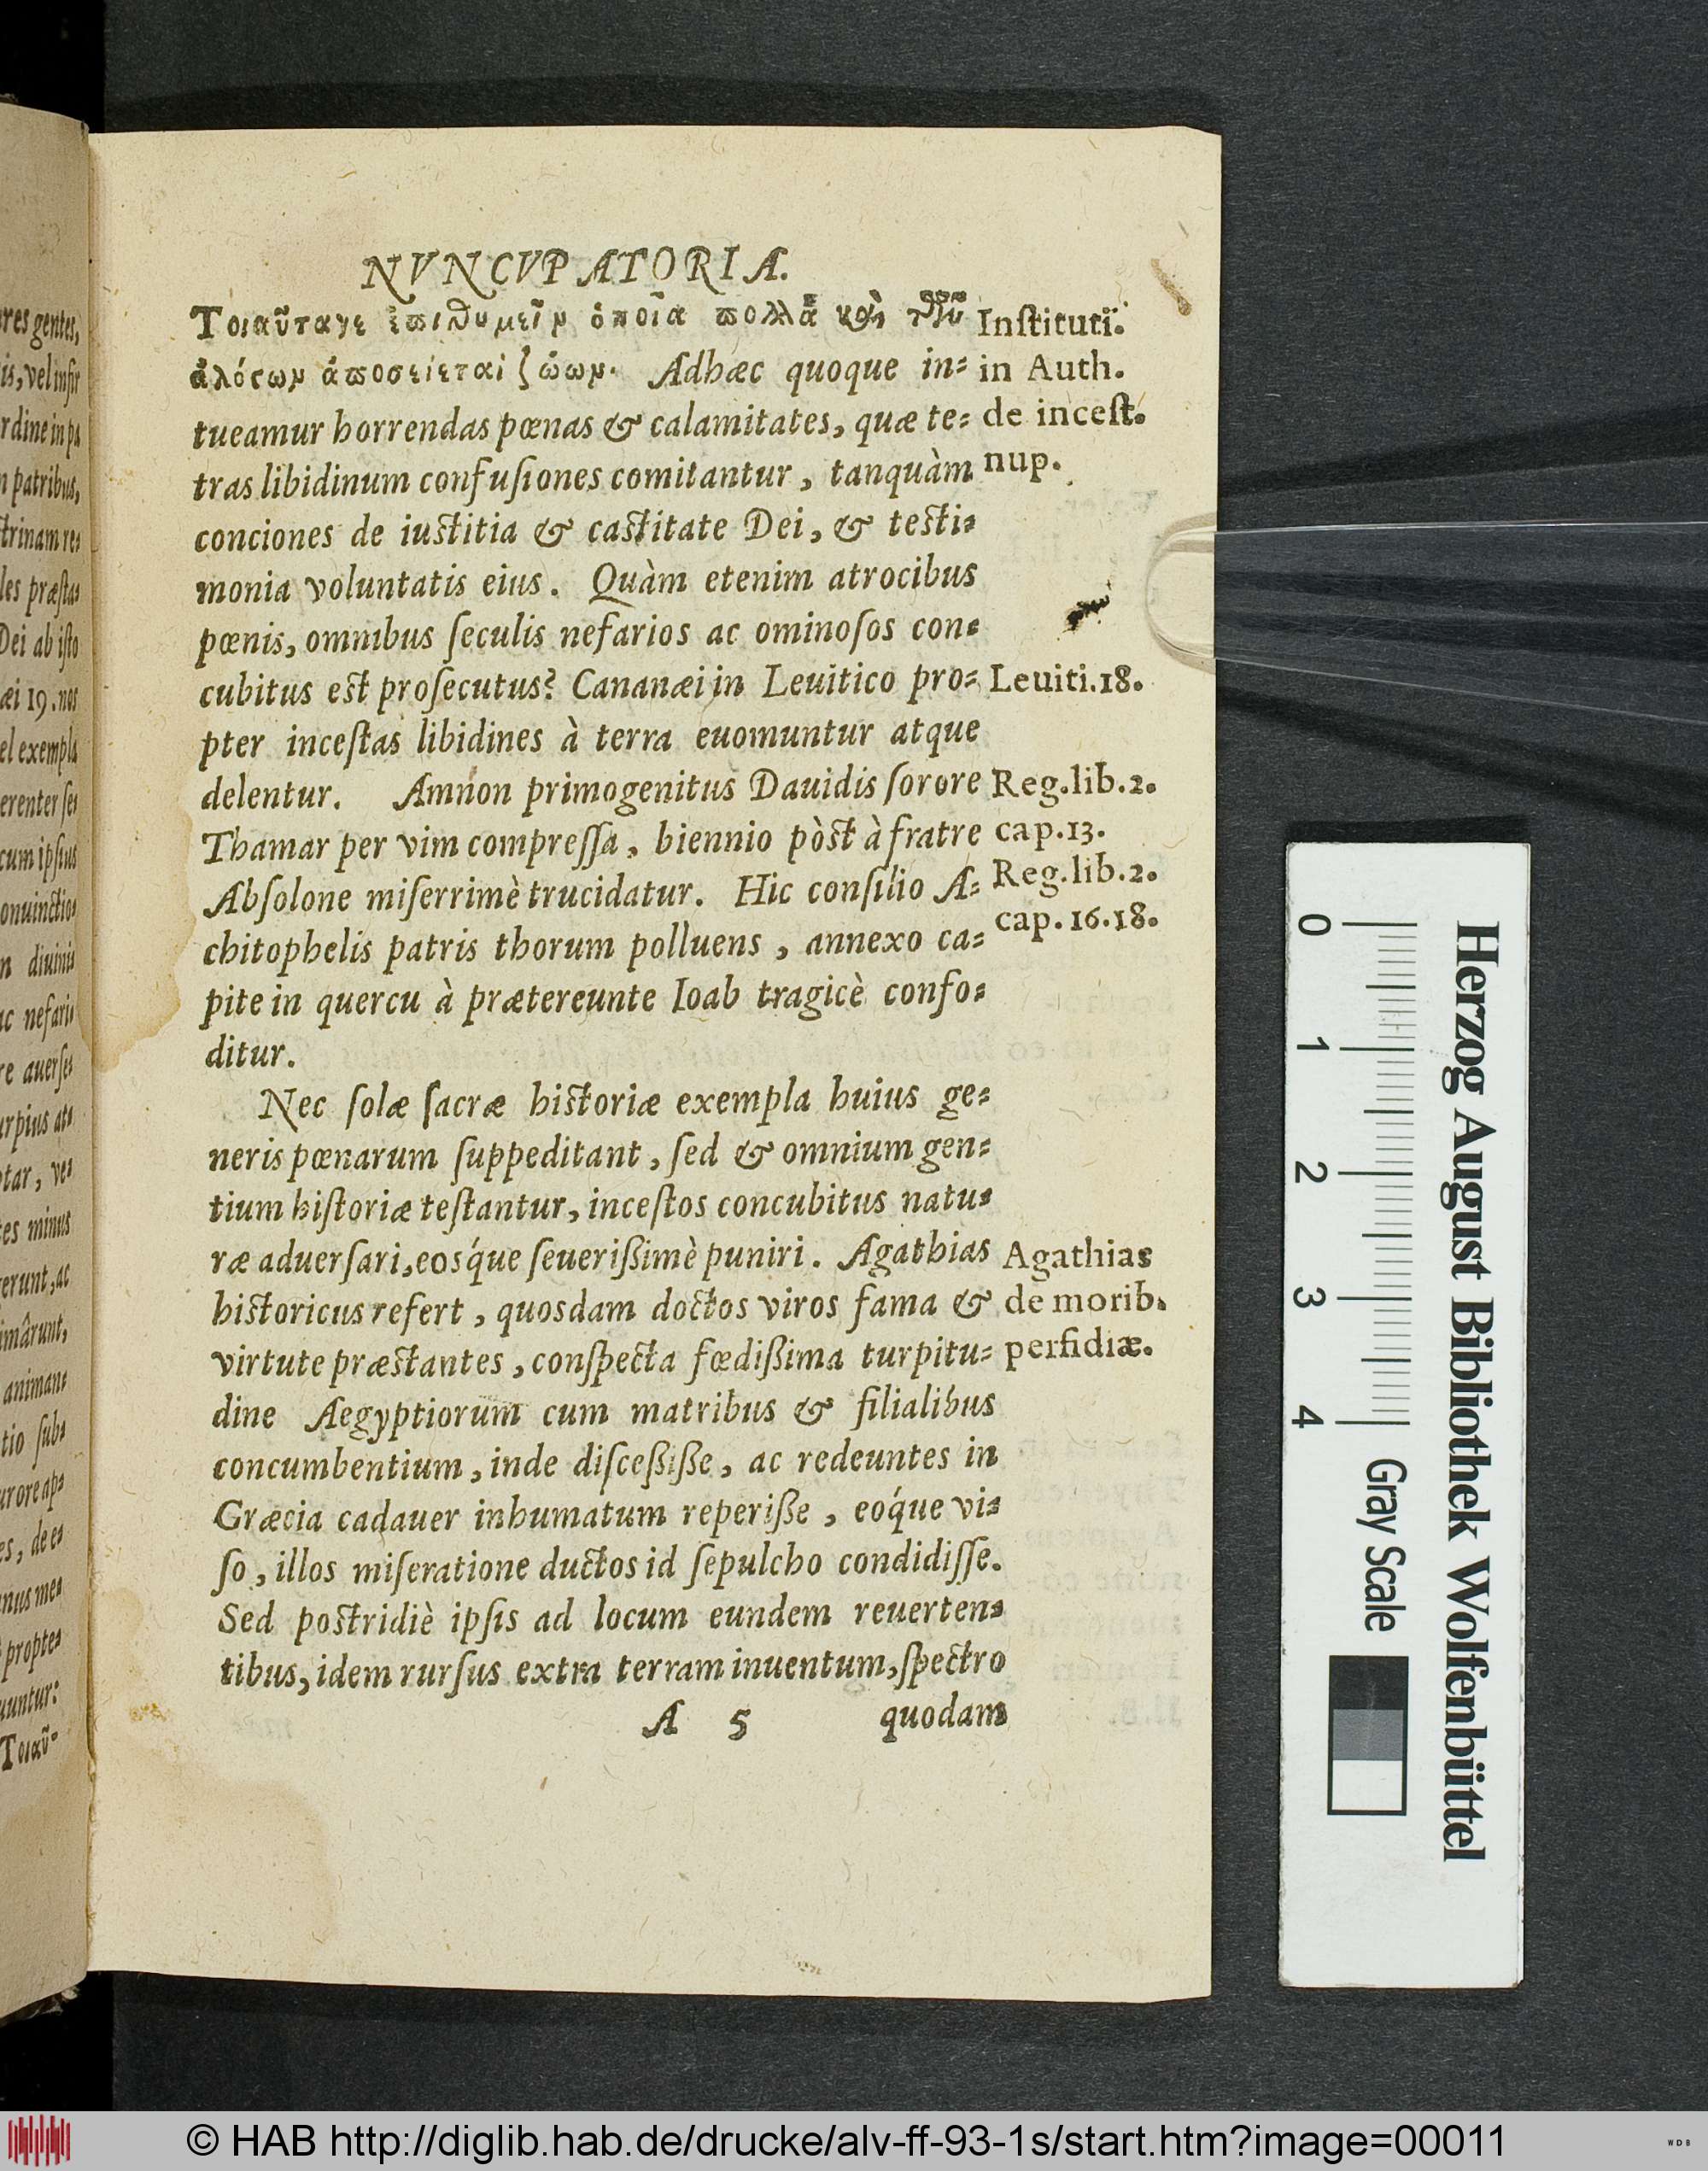 NVNCVPATORIA.
Τοιαῦταγε ἐπιθυμεῖν ὁποῖα πολλὰ καὶ τῶν
ἀλόγων ἀποσείεται ζώων. Adhæc quoque in=
tueamur horrendas pœnas & calamitates, quæ te=
tras libidinum confuſiones comitantur, tanquàm
conciones de iustitia & castitate Dei, & testi=
monia voluntatis eius. Quàm etenim atrocibus
pœnis, omnibus ſeculis nefarios ac ominoſos con=
cubitus est proſecutus? Cananæi in Leuitico pro=
pter inceſtas libidines à terra euomuntur atque
delentur. Amnon primogenitus Dauidis ſorore
Thamar per vim compreſſa, biennio pòst à fratre
Abſolone miſerrimè trucidatur. Hic conſilio A=
chitophelis patris thorum polluens, annexo ca=
pite in quercu à prætereunte Ioab tragicè confo=
ditur.
Nec ſolæ ſacræ historiæ exempla huius ge=
neris pœnarum ſuppeditant, ſed & omnium gen=
tium hiſtoriæ teſtantur, inceſtos concubitus natu=
ræ aduerſari, eosq́ue ſeuerißimè puniri. Agathias
historicus refert, quosdam doctos viros fama &
virtute præstantes, conſpecta fœdißima turpitu=
dine Aegyptiorum cum matribus & filialibus
concumbentium, inde diſceßiße, ac redeuntes in
Græcia cadauer inhumatum reperiße, eoq́ue vi=
ſo, illos miſeratione ductos id ſepulcho condidiſſe.
Sed postridiè ipſis ad locum eundem reuerten=
tibus, idem rurſus extra terram inuentum, ſpectro
A 5 quodam
Inſtituti.
in Auth.
de inceſt.
nup.
Leuiti.18.
Reg.lib.2.
cap.13.
Reg.lib.2.
cap.16.18.
Agathias
de morib.
perfidiæ.
res gentes,
patribus,
trinam re=
les præſta=
Dei ab iſto
æi 19. nos
el exempla
cum ipſius
diuinis
nefariis
tes minus
erunt, ac
Τοιαῦ=
Herzog August Bibliothek Wolfenbüttel
0 1 2 3 4 Gray Scale
© HAB http://diglib.hab.de/drucke/alv-ff-93-1s/start.htm?image=00011
WDB